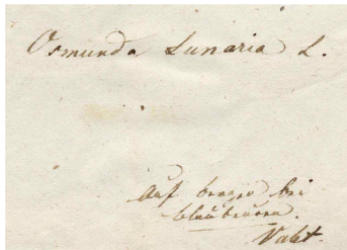 Osmunda Lunaria L.
Auf bergen bei
blaubeuren.
Valet.